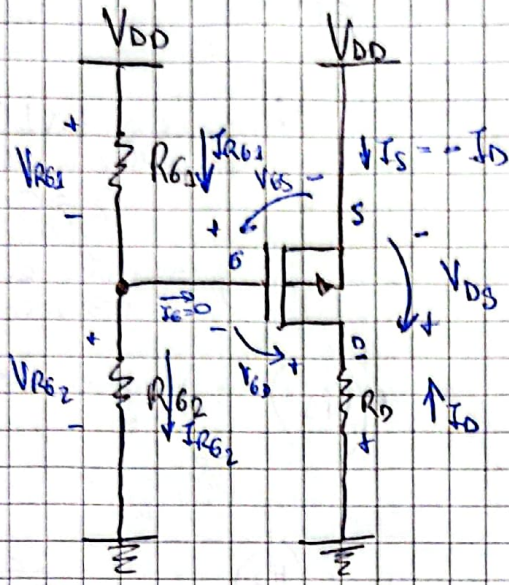 VDD
VDD
+
VRG1
-
RG1
IRG1
VGS
-
+
IS = -ID
S
-
VDS
+
G
IG=0
-
VGD
+
D
+
VRG2
-
RG2
IRG2
RD
+
ID